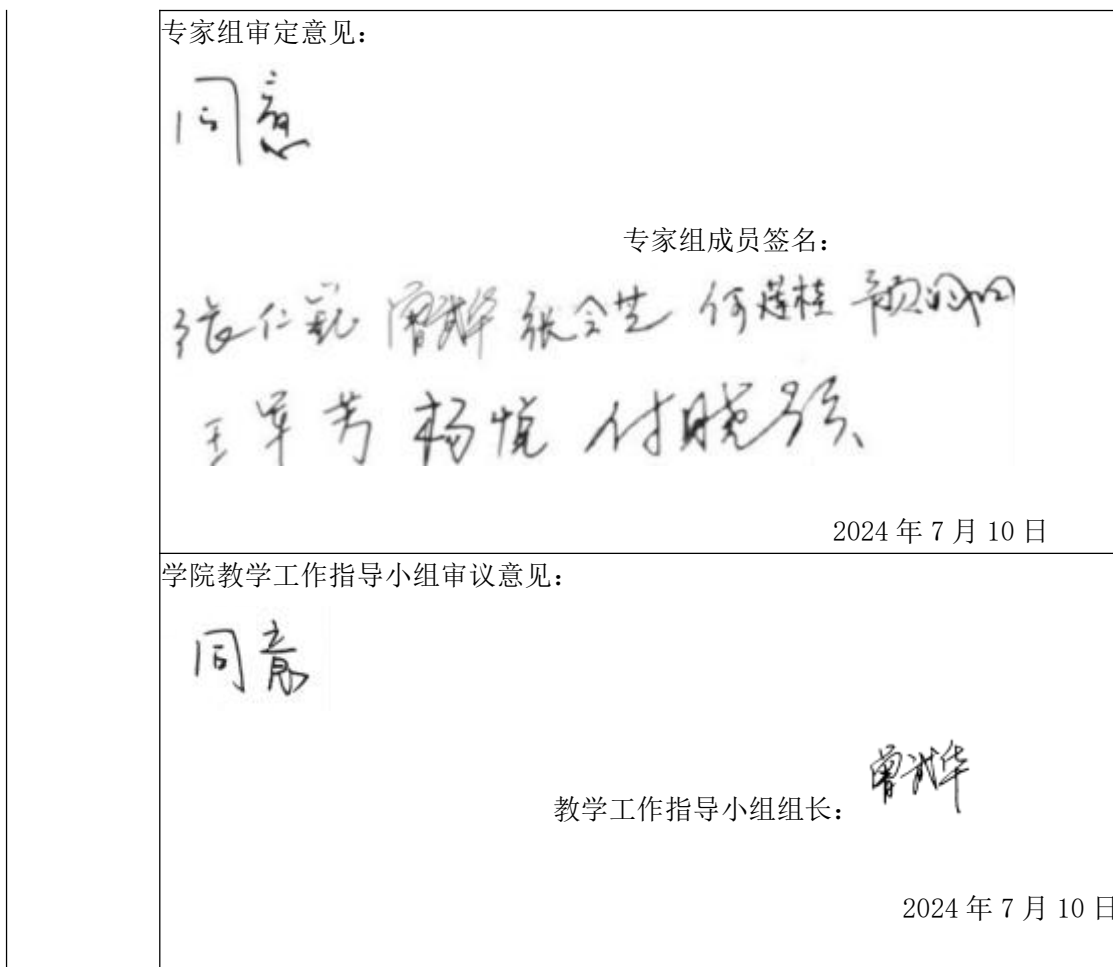 专家组审定意见：
同意
专家组成员签名：
张仁 曾武华 张会芝 何莲桂
王军芳 杨悦 付晓强
2024年7月10日
学院教学工作指导小组审议意见：
同意
曾武华
教学工作指导小组组长：
2024年7月10日